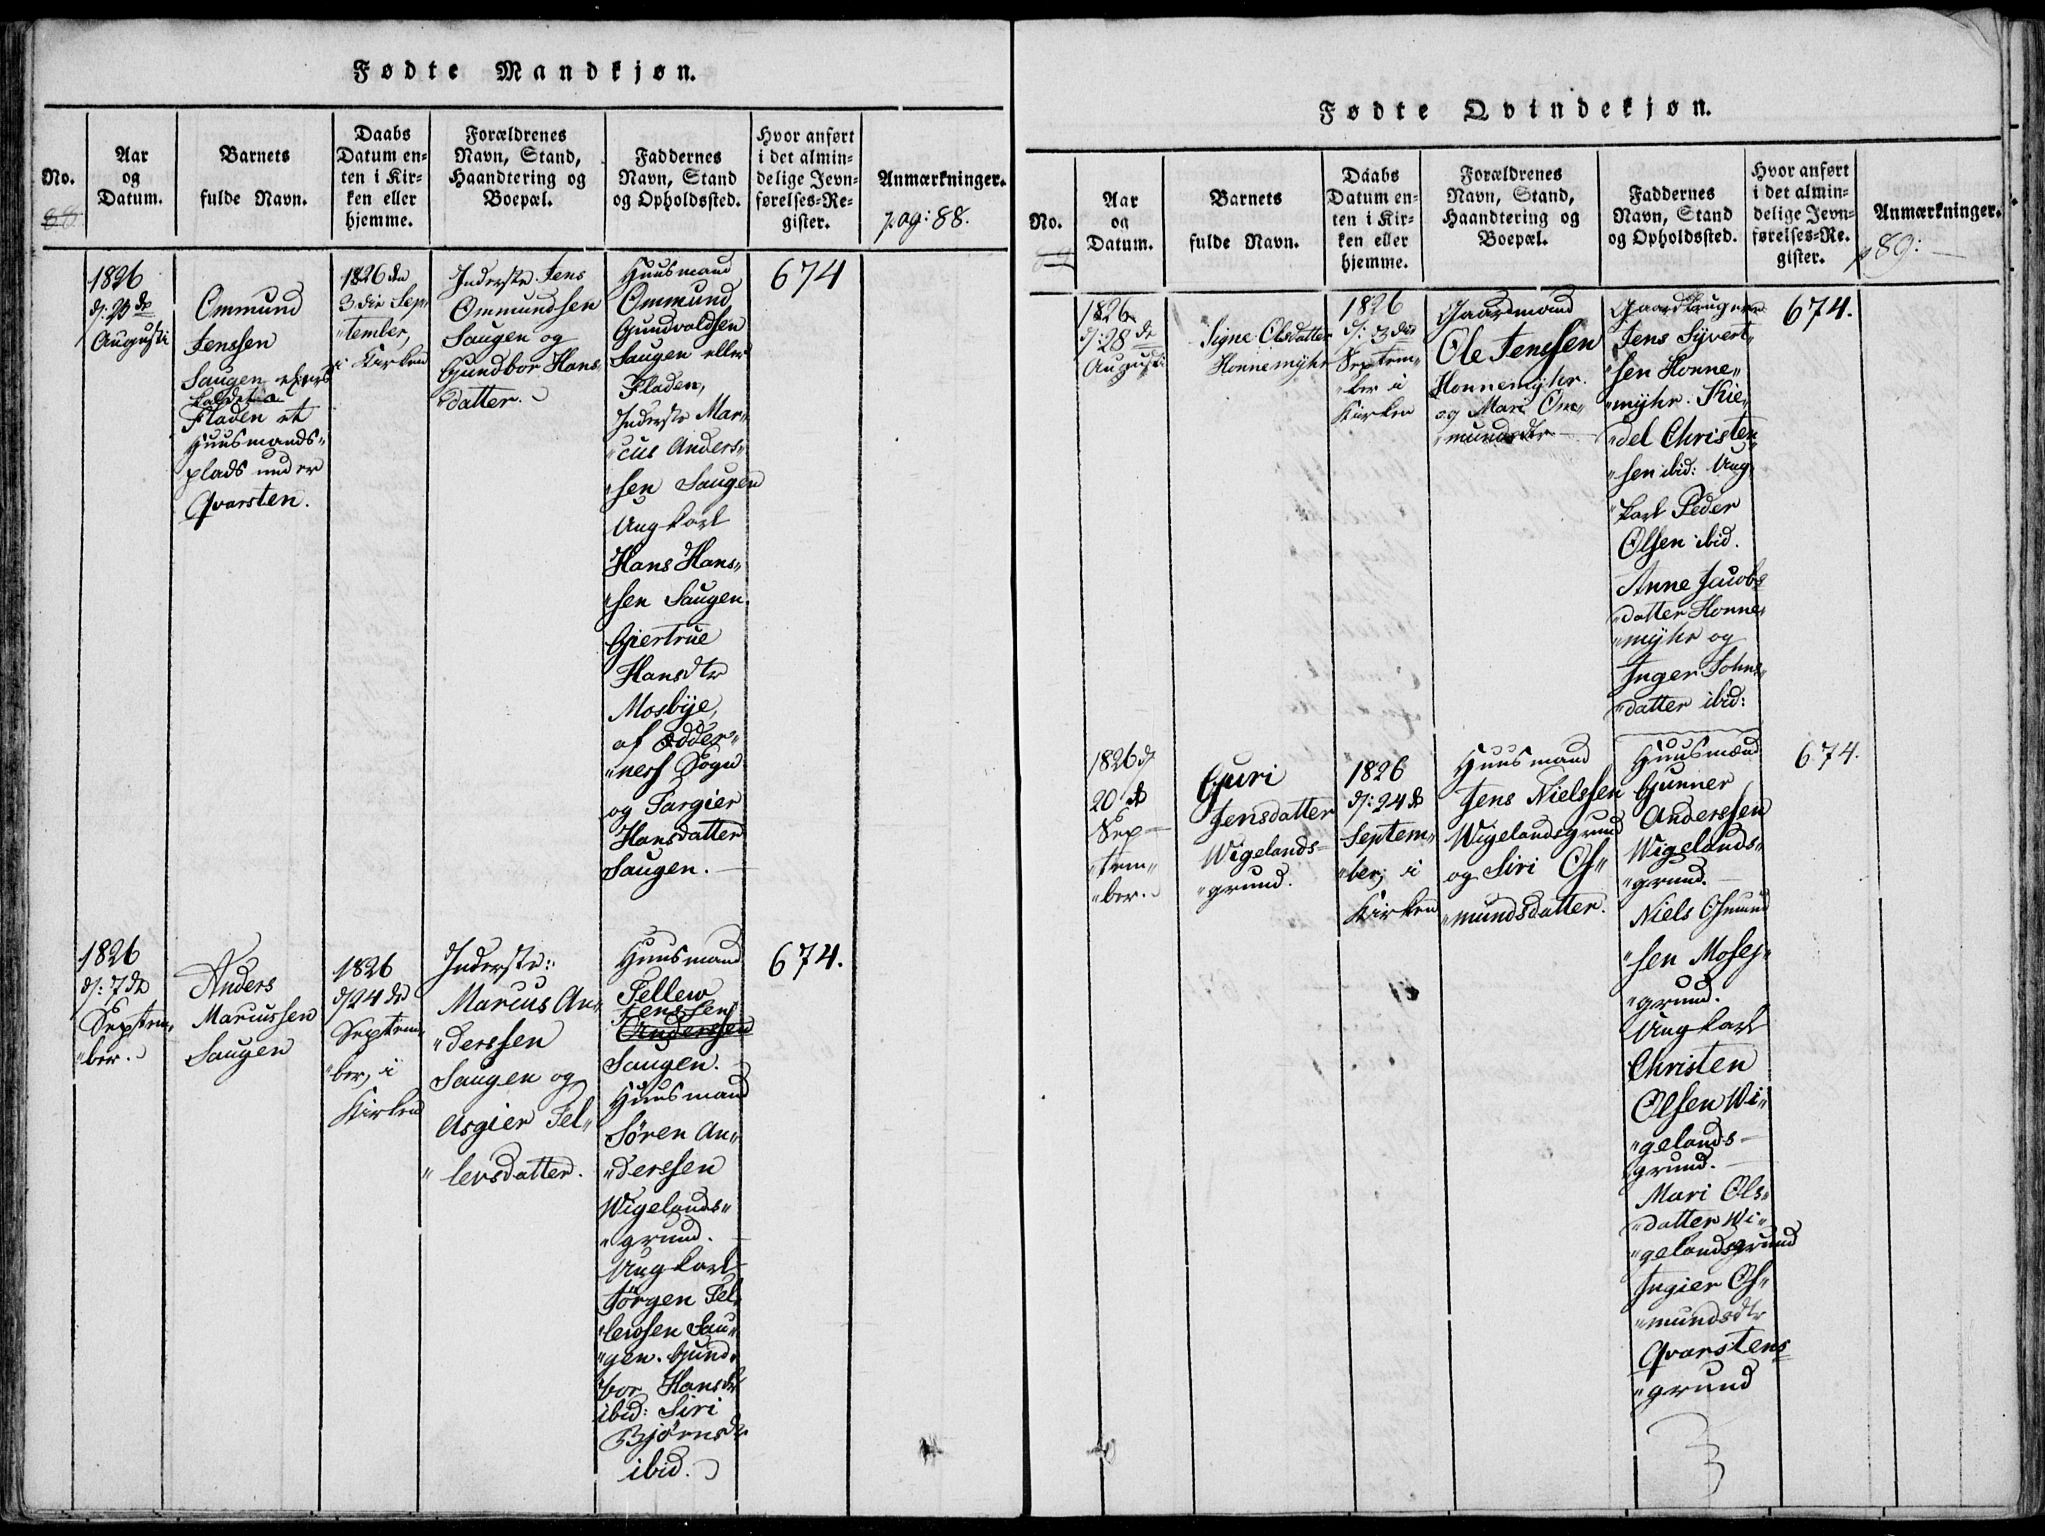 Fødte Mandkjøn.
No.
88.
Aar
og
Datum.
Barnets
fulde Navn.
Daabs
Datum en-
ten i Kir-
ken eller
hjemme.
Forældrenes
Navn, Stand,
Haandtering og
Boepæl.
Faddernes
Navn, Stand
og Opholdssted.
Hvor anført
i det almin-
delige Jevn-
førelses-Re-
gister.
Anmærkninger.
pag: 88.
1826
Augusti
Ommund
Jenssen
Saugen
Fladen et
Huusmands"
plads under
Qvarsten.
1826 den
3die Sep"
"tember,
i Kirken
Inderste Jens
Ommundsen
Saugen og
Gundbor Hans"
"datter.
Huusmand
Ommund
Gundvaldsen
Saugen eller
Fladen,
Inderste Mar"
"cus Anders"
"sen Saugen
Ungkarl
Hans Hans"
"sen Saugen.
Giertrue
Hansdtr
Mosbye,
af Odder"
"ness Sogn
og Targier
Hansdatter
Saugen.
674
1826
d: 7de
Septem"
"ber.
Anders
Marcussen
Saugen
1826
d 24de
Septem"
"ber, i
Kirken
Inderste:
Marcus An"
"derssen
Saugen og
Asgier Tel"
"levsdatter.
Huusmand
Tellew
Jenssen
Anderssen
Saugen.
Huusmand
Søren An"
"derssen
Wigelands"
"grund.
Ungkarl
Jørgen Tel"
"lewsen Sau"
"gen. Gund"
"bor Hansdr
ibid: Siri
Bjørnsdr
ibid.
674.
Fødte Qvindekjøn.
No.
89
Aar
og
Datum.
Barnets
fulde Navn.
Daabs
Datum en-
ten i Kir-
ken eller
hjemme.
Forældrenes
Navn, Stand,
Haandtering og
Boepæl.
Faddernes
Navn, Stand
og Opholdssted.
Hvor anført
i det almin-
delige Jevn-
førelses-Re-
gister.
Anmærkninger.
p 89:
1826
d: 28de
Augusti
Signe Olsdatter
Honnemyhr
1826
d: 3die
Septem"
"ber i
Kirken
Gaardmand
Ole Jenssen
Honnemyhr.
og Mari Om"
"mundsdtr
Gaardbrugere
Jens Syvert"
"sen Honne"
"myhr. Kie"
"del Christen"
"sen ibid: Ung"
"karl Peder
Olsen ibid.
Anne Jacobs"
"datter Honne"
"myhr og
Inger Johns"
"datter ibid:
674.
1826 d
20de
Sep"
"tem"
"ber.
Guri
Jensdatter
Wigelands"
"grund.
1826
d: 24de
Septem"
"ber, i
Kirken
Huusmand
Jens Nielssen
Wigelandsgrund
og Siri Os"
"mundsdatter.
Huusmænd
Gunner
Anderssen
Wigelands"
"grund.
Niels Osmund"
"sen Mosej"
"grund.
Ungkarl
Christen
Olsen Wi"
"gelands"
"grund.
Mari Ols"
"datter Wi"
"gelandsgrund
Ingier Os"
"mundsdtr
Qvarstens"
"grund
674.